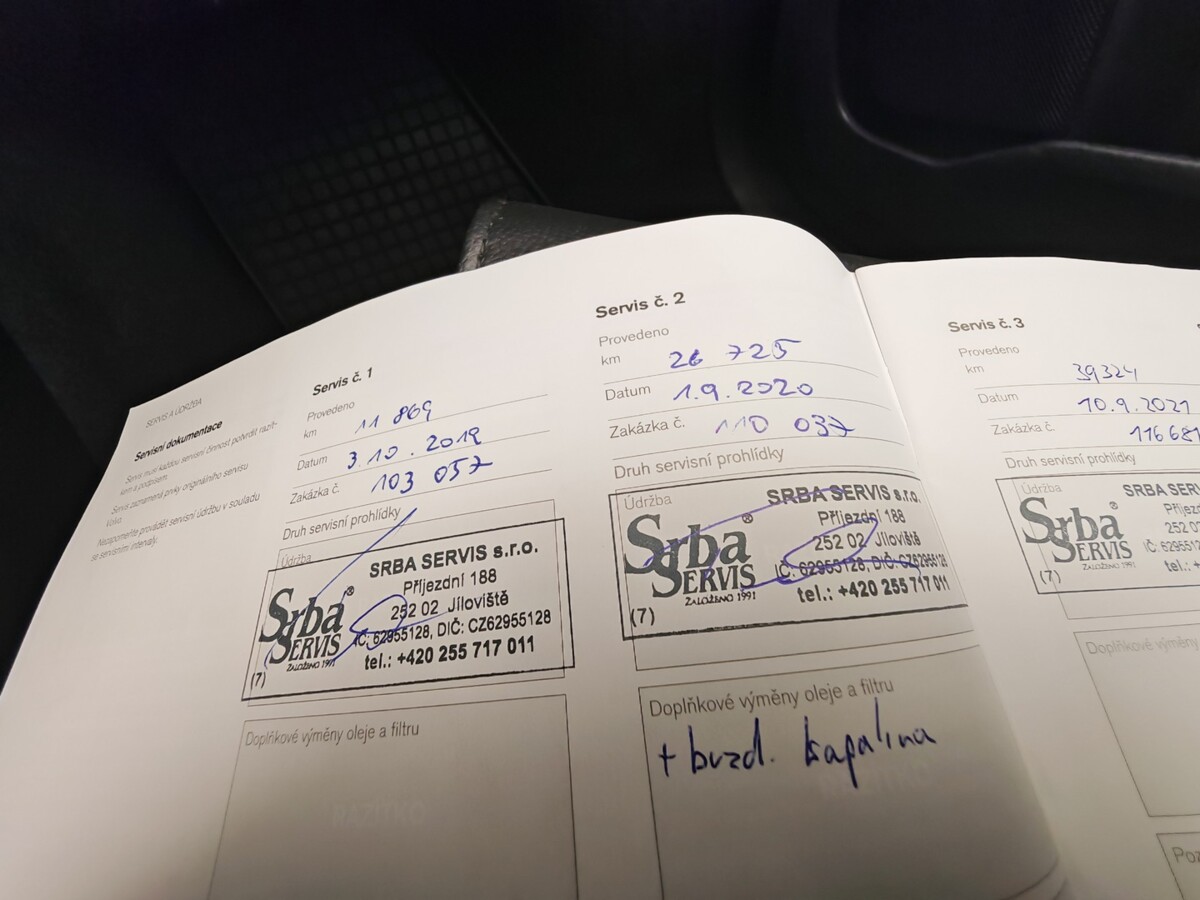 SERVIS A ÚDRŽBA
Servisní dokumentace
Servis musí každou servisní činnost potvrdit razít-
kem a podpisem.
Servis zaznamená prvky originálního servisu
Volvo.
Nezapomeňte provádět servisní údržbu v souladu
se servisními intervaly.
Servis č. 1
Provedeno
km 11 869
Datum 3.10.2019
Zakázka č. 103 057
Druh servisní prohlídky
Údržba
Srba
SERVIS
ZALOŽENO 1991
(7)
SRBA SERVIS s.r.o.
Příjezdní 188
252 02 Jíloviště
IČ: 62955128, DIČ: CZ62955128
tel.: +420 255 717 011
Doplňkové výměny oleje a filtru
RAZÍTKO
Servis č. 2
Provedeno
km 26 725
Datum 1.9.2020
Zakázka č. 110 037
Druh servisní prohlídky
Údržba
Srba
SERVIS
ZALOŽENO 1991
(7)
SRBA SERVIS s.r.o.
Příjezdní 188
252 02 Jíloviště
IČ: 62955128, DIČ: CZ62955128
tel.: +420 255 717 011
Doplňkové výměny oleje a filtru
+ brzd. kapalina
RAZÍTKO
Servis č. 3
Provedeno
km 39324
Datum 10.9.2021
Zakázka č. 116681
Druh servisní prohlídky
Údržba
Srba
SERVIS
ZALOŽENO 1991
(7)
SRBA SERV
Příjez
252 0
IČ: 6295
tel.: +
Doplňkové výměny
Poz